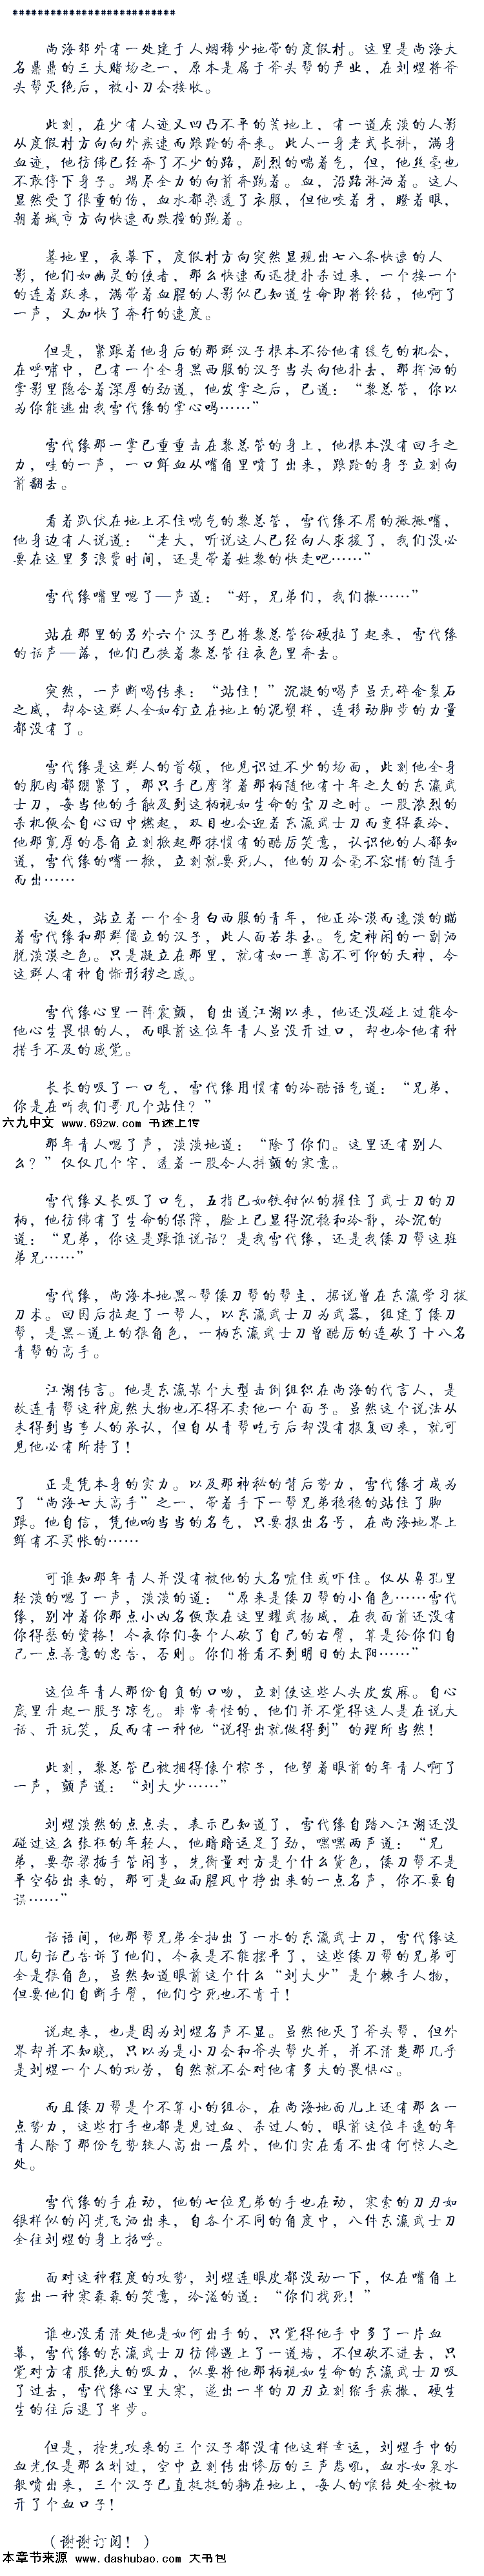 **************************
尚海郊外有一处建于人烟稀少地带的度假村。这里是尚海大
名鼎鼎的三大赌场之一，原本是属于斧头帮的产业，在刘煜将斧
头帮灭绝后，被小刀会接收。
此刻，在少有人迹又凹凸不平的荒地上，有一道灰淡的人影
从度假村方向向外疾速而踉跄的奔来。此人一身老式长褂，满身
血迹，他彷佛已经奔了不少的路，剧烈的喘着气，但，他丝毫也
不敢停下身子。竭尽全力的向前奔跑着。血，沿路淋洒着。这人
显然受了很重的伤，血水都染透了衣服，但他咬着牙，瞪着眼，
朝着城市方向快速而跌撞的跑着。
蓦地里，夜幕下，度假村方向突然显现出七八条快速的人
影，他们如幽灵的使者，那么快速而迅捷扑杀过来，一个接一个
的连着跃来，满带着血腥的人影似已知道生命即将终结，他啊了
一声，又加快了奔行的速度。
但是，紧跟着他身后的那群汉子根本不给他有缓气的机会，
在呼啸中，已有一个全身黑西服的汉子当头向他扑去，那挥洒的
掌影里隐含着深厚的劲道，他发掌之后，已道：“黎总管，你以
为你能逃出我雪代缘的掌心吗……”
雪代缘那一掌已重重击在黎总管的身上，他根本没有回手之
力，哇的一声，一口鲜血从嘴角里喷了出来，踉跄的身子立刻向
前翻去。
看着趴伏在地上不住喘气的黎总管，雪代缘不屑的撇撇嘴，
他身边有人说道：“老大，听说这人已经向人求援了，我们没必
要在这里多浪费时间，还是带着姓黎的快走吧……”
雪代缘嘴里嗯了一声道：“好，兄弟们，我们撤……”
站在那里的另外六个汉子已将黎总管给硬拉了起来，雪代缘
的话声一落，他们已挟着黎总管往夜色里奔去。
突然，一声断喝传来：“站住！”沉凝的喝声虽无碎金裂石
之威，却令这群人全如钉立在地上的泥塑样，连移动脚步的力量
都没有了。
雪代缘是这群人的首领，他见识过不少的场面，此刻他全身
的肌肉都绷紧了，那只手已摩挲着那柄随他有十年之久的东瀛武
士刀，每当他的手触及到这柄视如生命的宝刀之时。一股浓烈的
杀机便会自心田中燃起，双目也会迎着东瀛武士刀而变得森冷，
他那宽厚的唇角立刻掀起那抹惯有的酷厉笑意，认识他的人都知
道，雪代缘的嘴一掀，立刻就要死人，他的刀会毫不容情的随手
而出……
远处，站立着一个全身白西服的青年，他正冷漠而逸淡的瞄
着雪代缘和那群僵立的汉子，此人面若朱玉。气定神闲的一副洒
脱淡漠之色。只是凝立在那里，就有如一尊高不可仰的天神，令
这群人有种自惭形秽之感。
雪代缘心里一阵震颤，自出道江湖以来，他还没碰上过能令
他心生畏惧的人，而眼前这位年青人虽没开过口，却也令他有种
措手不及的感觉。
长长的吸了一口气，雪代缘用惯有的冷酷语气道：“兄弟，
你是在听我们哥几个站住？”
六九中文 www.69zw.com 书迷上传
那年青人嗯了声，淡淡地道：“除了你们。这里还有别人
么？”仅仅几个字，透着一股令人抖颤的寒意。
雪代缘又长吸了口气，五指已如铁钳似的握住了武士刀的刀
柄，他彷佛有了生命的保障，脸上已显得沉稳和冷静，冷沉的
道：“兄弟，你这是跟谁说话？是我雪代缘，还是我倭刀帮这班
弟兄……”
雪代缘，尚海本地黑~帮倭刀帮的帮主，据说曾在东瀛学习拔
刀术。回国后拉起了一帮人，以东瀛武士刀为武器，组建了倭刀
帮，是黑~道上的狠角色，一柄东瀛武士刀曾酷厉的连砍了十八名
青帮的高手。
江湖传言。他是东瀛某个大型击倒组织在尚海的代言人，是
故连青帮这种庞然大物也不得不卖他一个面子。虽然这个说法从
未得到当事人的承认，但自从青帮吃亏后却没有报复回来，就可
见他必有所持了！
正是凭本身的实力。以及那神秘的背后势力，雪代缘才成为
了“尚海七大高手”之一，带着手下一帮兄弟稳稳的站住了脚
跟。他自信，凭他响当当的名气，只要报出名号，在尚海地界上
鲜有不买帐的……
可谁知那年青人并没有被他的大名唬住或吓住。仅从鼻孔里
轻淡的嗯了一声，淡淡的道：“原来是倭刀帮的小角色……雪代
缘，别冲着你那点小凶名便敢在这里耀武扬威，在我面前还没有
你得瑟的资格！今夜你们每个人砍了自己的右臂，算是给你们自
己一点善意的忠告，否则。你们将看不到明日的太阳……”
这位年青人那份自负的口吻，立刻使这些人头皮发麻。自心
底里升起一股子凉气。非常奇怪的，他们并不觉得这人是在说大
话、开玩笑，反而有一种他“说得出就做得到”的理所当然！
此刻，黎总管已被捆得像个粽子，他望着眼前的年青人啊了
一声，颤声道：“刘大少……”
刘煜淡然的点点头，表示已知道了，雪代缘自踏入江湖还没
碰过这么张狂的年轻人，他暗暗运足了劲，嘿嘿两声道：“兄
弟，要架梁插手管闲事，先衡量对方是个什么货色，倭刀帮不是
平空钻出来的，那可是血雨腥风中挣出来的一点名声，你不要自
误……”
话语间，他那帮兄弟全抽出了一水的东瀛武士刀，雪代缘这
几句话已告诉了他们，今夜是不能摆平了，这些倭刀帮的兄弟可
全是狠角色，虽然知道眼前这个什么“刘大少”是个棘手人物，
但要他们自断手臂，他们宁死也不肯干！
说起来，也是因为刘煜名声不显。虽然他灭了斧头帮，但外
界却并不知晓，只以为是小刀会和斧头帮火并，并不清楚那几乎
是刘煜一个人的功劳，自然就不会对他有多大的畏惧心。
而且倭刀帮是个不算小的组合，在尚海地面儿上还有那么一
点势力，这些打手也都是见过血、杀过人的，眼前这位丰逸的年
青人除了那份气势较人高出一层外，他们实在看不出有何惊人之
处。
雪代缘的手在动，他的七位兄弟的手也在动，寒索的刀刃如
银样似的闪光飞洒出来，自各个不同的角度中，八件东瀛武士刀
全往刘煜的身上招呼。
面对这种程度的攻势，刘煜连眼皮都没动一下，仅在嘴角上
露出一种寒森森的笑意，冷溢的道：“你们找死！”
谁也没看清处他是如何出手的，只觉得他手中多了一片血
幕，雪代缘的东瀛武士刀彷佛遇上了一道墙，不但砍不进去，只
觉对方有股绝大的吸力，似要将他那柄视如生命的东瀛武士刀吸
了过去，雪代缘心里大寒，递出一半的刀刃立刻缩手疾撤，硬生
生的往后退了半步。
但是，抢先攻来的三个汉子都没有他这样幸运，刘煜手中的
血光仅是那么划过，空中立刻传出惨厉的三声悲吼，血水如泉水
般喷出来，三个汉子已直挺挺的躺在地上，每人的喉结处全被切
开了个血口子！
（谢谢订阅！）
本章节来源 www.dashubao.com 大书包